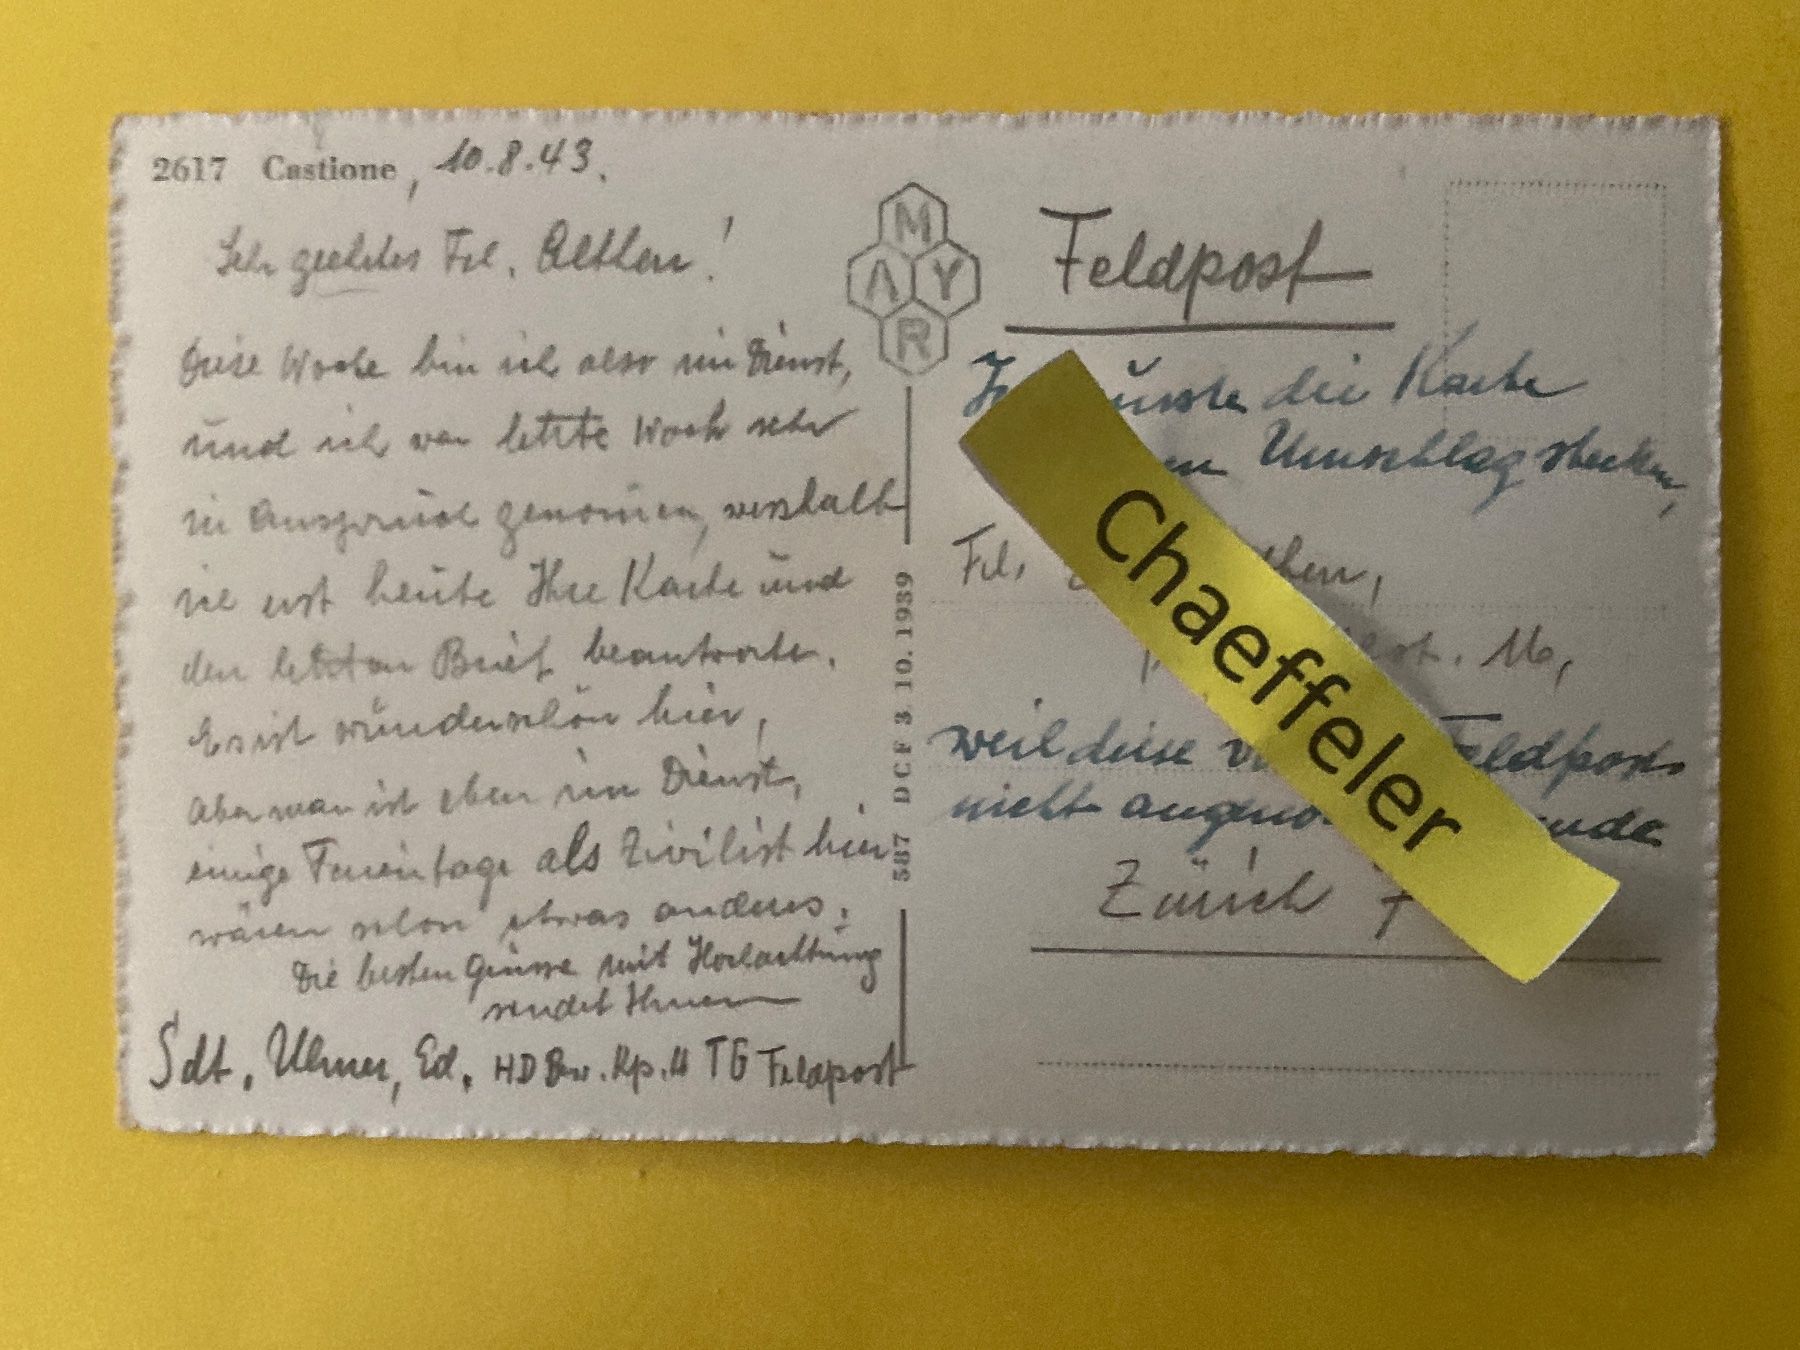 2617 Castione, 10.8.43.
Sehr geehrtes Frl. Althen!
Diese Woche bin ich also im Dienst,
und ich war letzte Woch sehr
in Anspruch genomen, weshalb
ich erst heute Ihre Karte und
den letzten Brief beantworte.
Es ist wunderschön hier,
aber man ist eben im Dienst,
einige Ferientage als Zivilist hier
wären schon etwas anderes.
Die besten Grüsse mit Hochachtung
sendet Ihnen
Sdt. Ulmer, Ed. HD Bew. Kp. 11 TG Feldpost
MAYR
587 DCF 3. 10. 1939
Feldpost
die Karte
Umschlag stecken,
Frl.
16,
weil diese Feldpost
nicht
Zürich 7
Chaeffeler